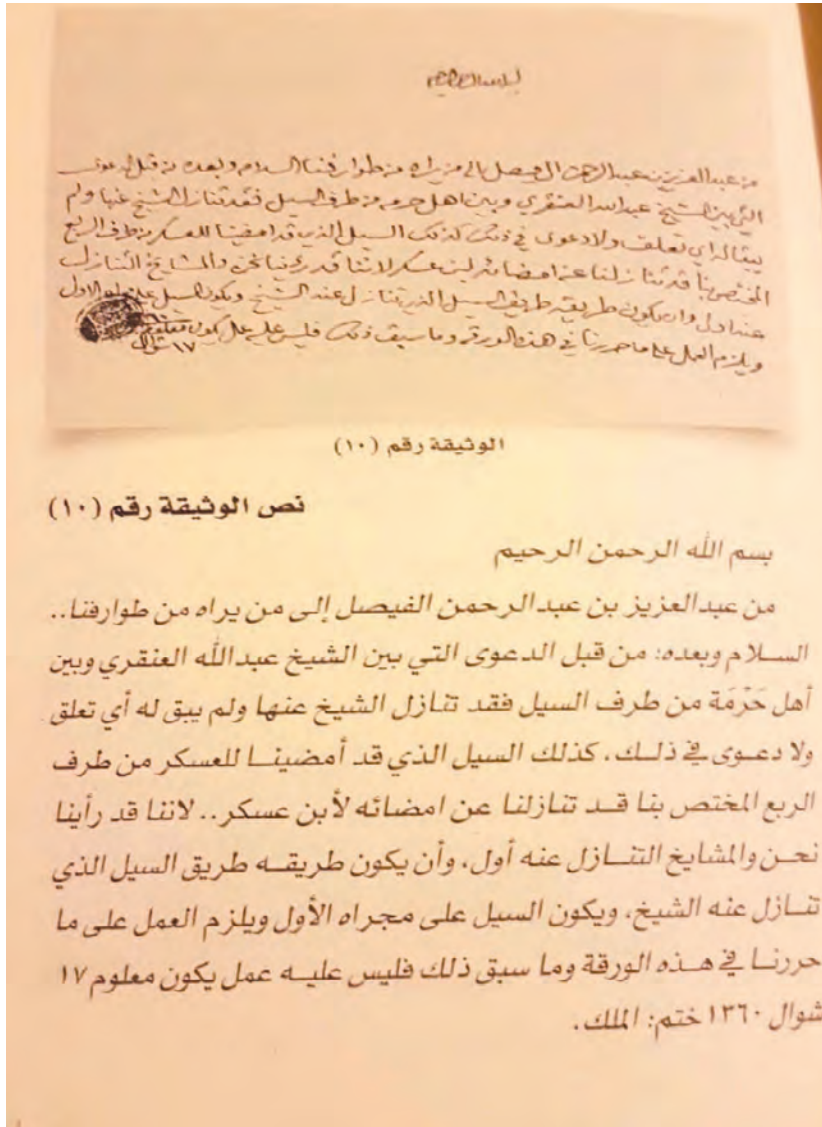 بسم الله الرحمن الرحيم
من عبدالعزيز بن عبدالرحمن ال فيصل الى من يراه من طوارفنا السلام وبعده من قبل الدعوى
التي بين الشيخ عبدالله العنقري وبين اهل حرمه من طرف السيل فقد تنازل الشيخ عنها ولم
يبقا له اي تعلق ولا دعوى في ذلك كذلك السيل الذي قد امضينا للعسكر من طرف الربع
المختص بنا قد تنازلنا عن امضائه لبن عسكر لاننا قد رئينا نحن والمشايخ التنازل
عنه اول وان يكون طريقه طريق السيل الذي تنازل عنه الشيخ ويكون السيل على مجراه الاول
ويلزم العمل على ما حررنا في هذه الورقه وما سبق ذلك فليس عليه عمل يكون معلوم
١٧ شوال
الوثيقة رقم (١٠)
نص الوثيقة رقم (١٠)
بسم الله الرحمن الرحيم
من عبدالعزيز بن عبدالرحمن الفيصل إلى من يراه من طوارفنا..
السلام وبعده: من قبل الدعوى التي بين الشيخ عبدالله العنقري وبين
أهل حَرْمَة من طرف السيل فقد تنازل الشيخ عنها ولم يبق له أي تعلق
ولا دعوى في ذلك. كذلك السيل الذي قد أمضينا للعسكر من طرف
الربع المختص بنا قد تنازلنا عن امضائه لأبن عسكر.. لاننا قد رأينا
نحن والمشايخ التنازل عنه أول، وأن يكون طريقه طريق السيل الذي
تنازل عنه الشيخ، ويكون السيل على مجراه الأول ويلزم العمل على ما
حررنا في هذه الورقة وما سبق ذلك فليس عليه عمل يكون معلوم ١٧
شوال ١٣٦٠ ختم: الملك.